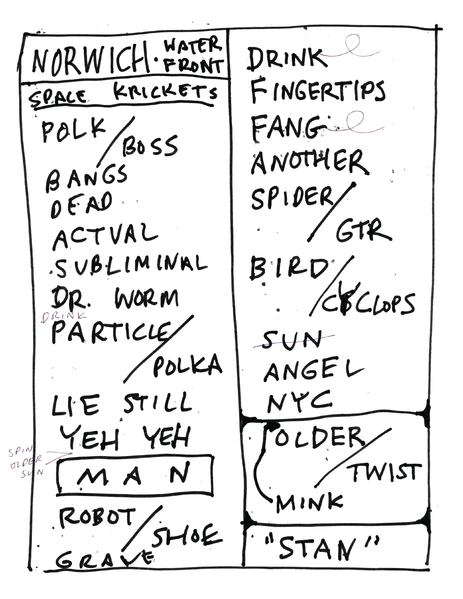 NORWICH · WATER
FRONT
SPACE KRICKETS
POLK / BOSS
BANGS
DEAD
ACTUAL
SUBLIMINAL
DR. WORM
DRINK
PARTICLE / POLKA
LIE STILL
YEH YEH
SPIN
OLDER
SUN
MAN
ROBOT / SHOE
GRAVE
DRINK
FINGERTIPS
FANG
ANOTHER
SPIDER / GTR
BIRD / CYCLOPS
SUN
ANGEL
NYC
OLDER / TWIST
MINK
"STAN"